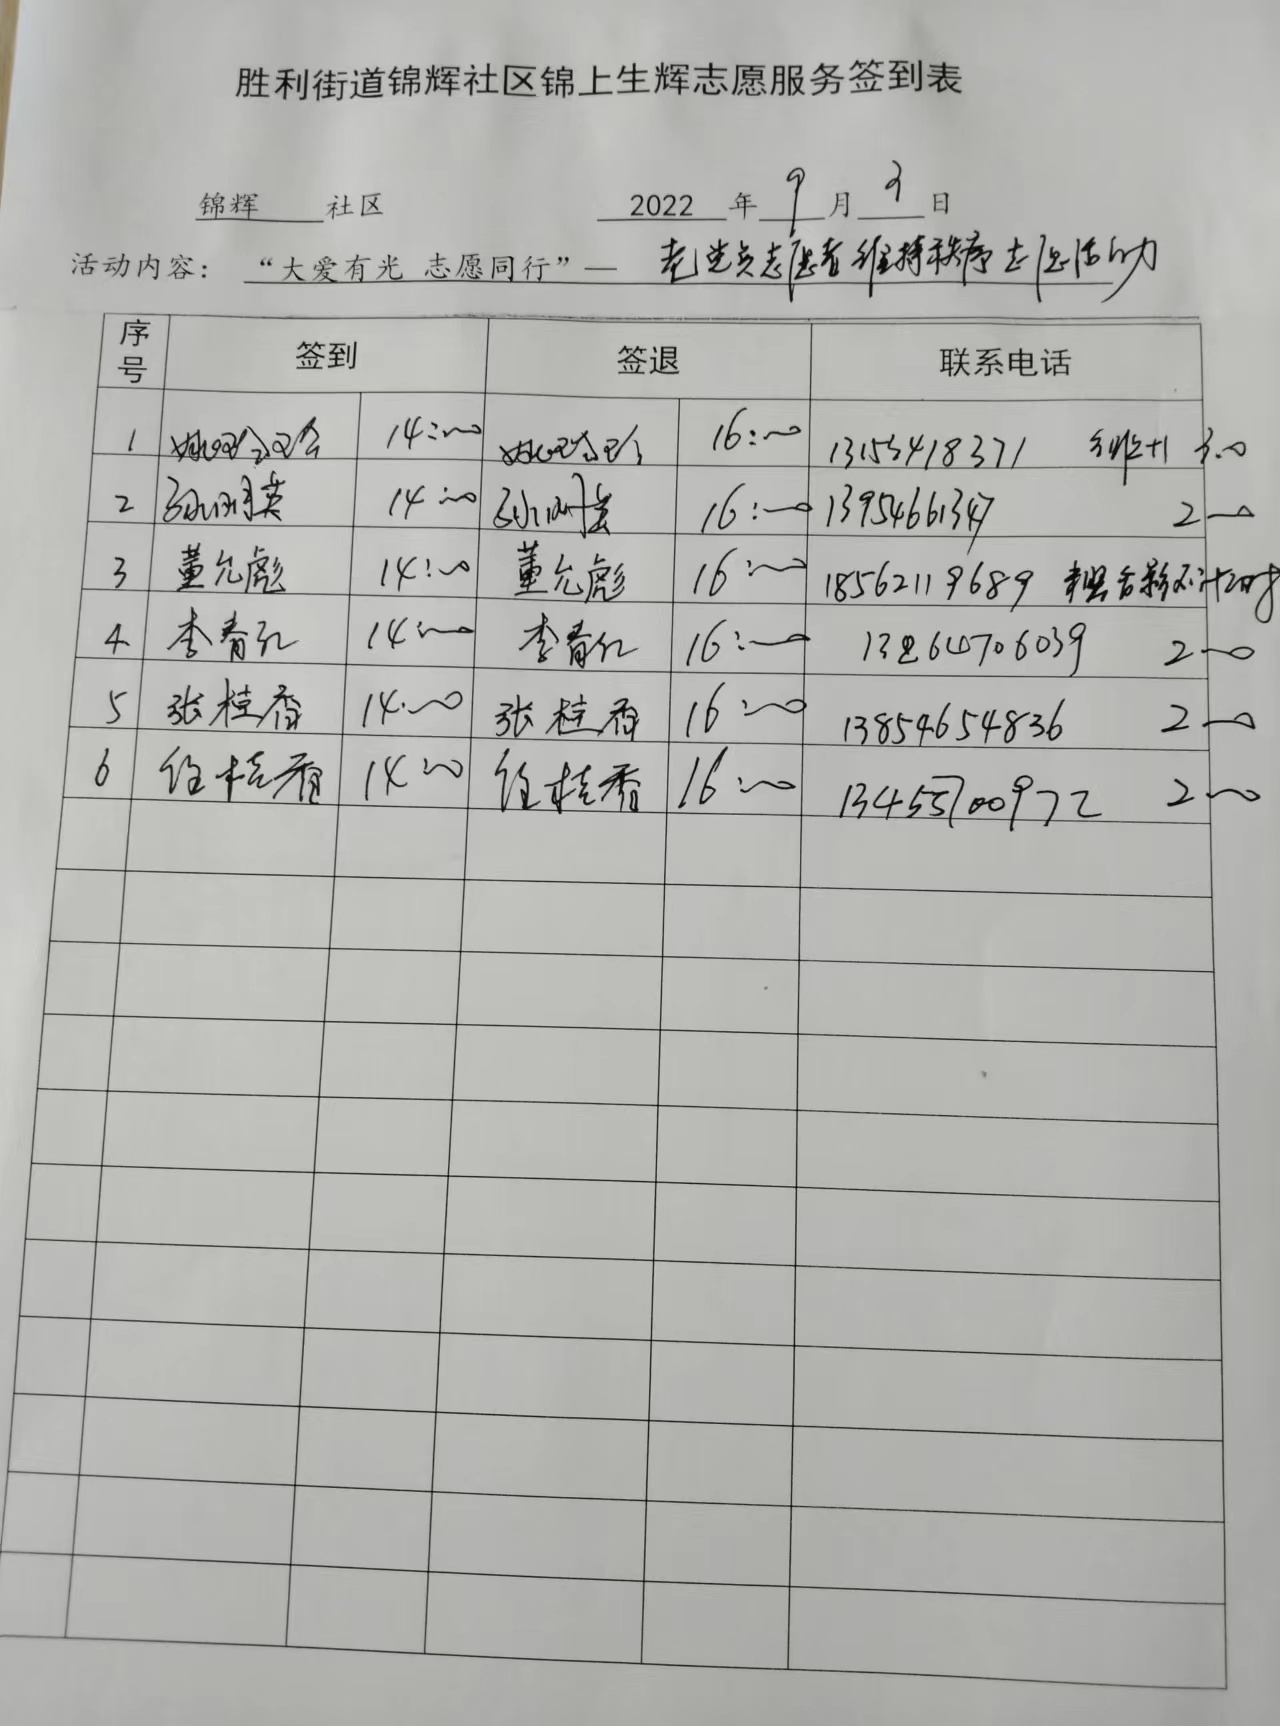 胜利街道锦辉社区锦上生辉志愿服务签到表
锦辉 社区 2022 年 9 月 3 日
活动内容： “大爱有光 志愿同行”— 老党员志愿者维持秩序志愿活动
序号 签到 签退 联系电话
1 14:00 16:00 13153418371 3.0
2 14:00 16:00 13954661347 2:00
3 董允彪 14:00 董允彪 16:00 18562119689
4 李青红 14:00 李青红 16:00 2:00
5 张桂香 14:00 张桂香 16:00 13854654836 2:00
6 任桂香 14:00 任桂香 16:00 13455700972 2:00